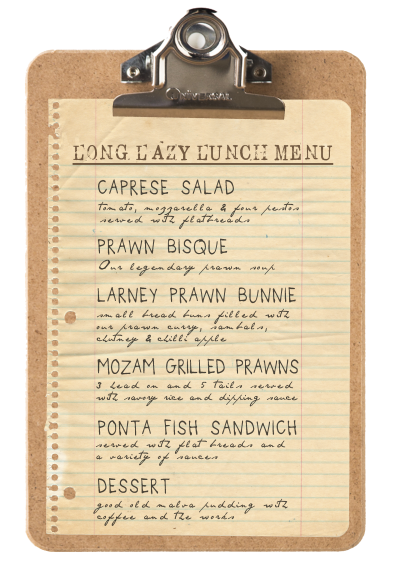 UNIVERSAL
LONG LAZY LUNCH MENU
CAPRESE SALAD
tomato, mozzarella & four pestos
served with flatbreads
PRAWN BISQUE
Our legendary prawn soup
LARNEY PRAWN BUNNIE
small bread buns filled with
our prawn curry, sambals,
chutney & chilli apple
MOZAM GRILLED PRAWNS
3 head on and 5 tails served
with savory rice and dipping sauce
PONTA FISH SANDWICH
served with flat breads and
a variety of sauces
DESSERT
good old malva pudding with
coffee and the works